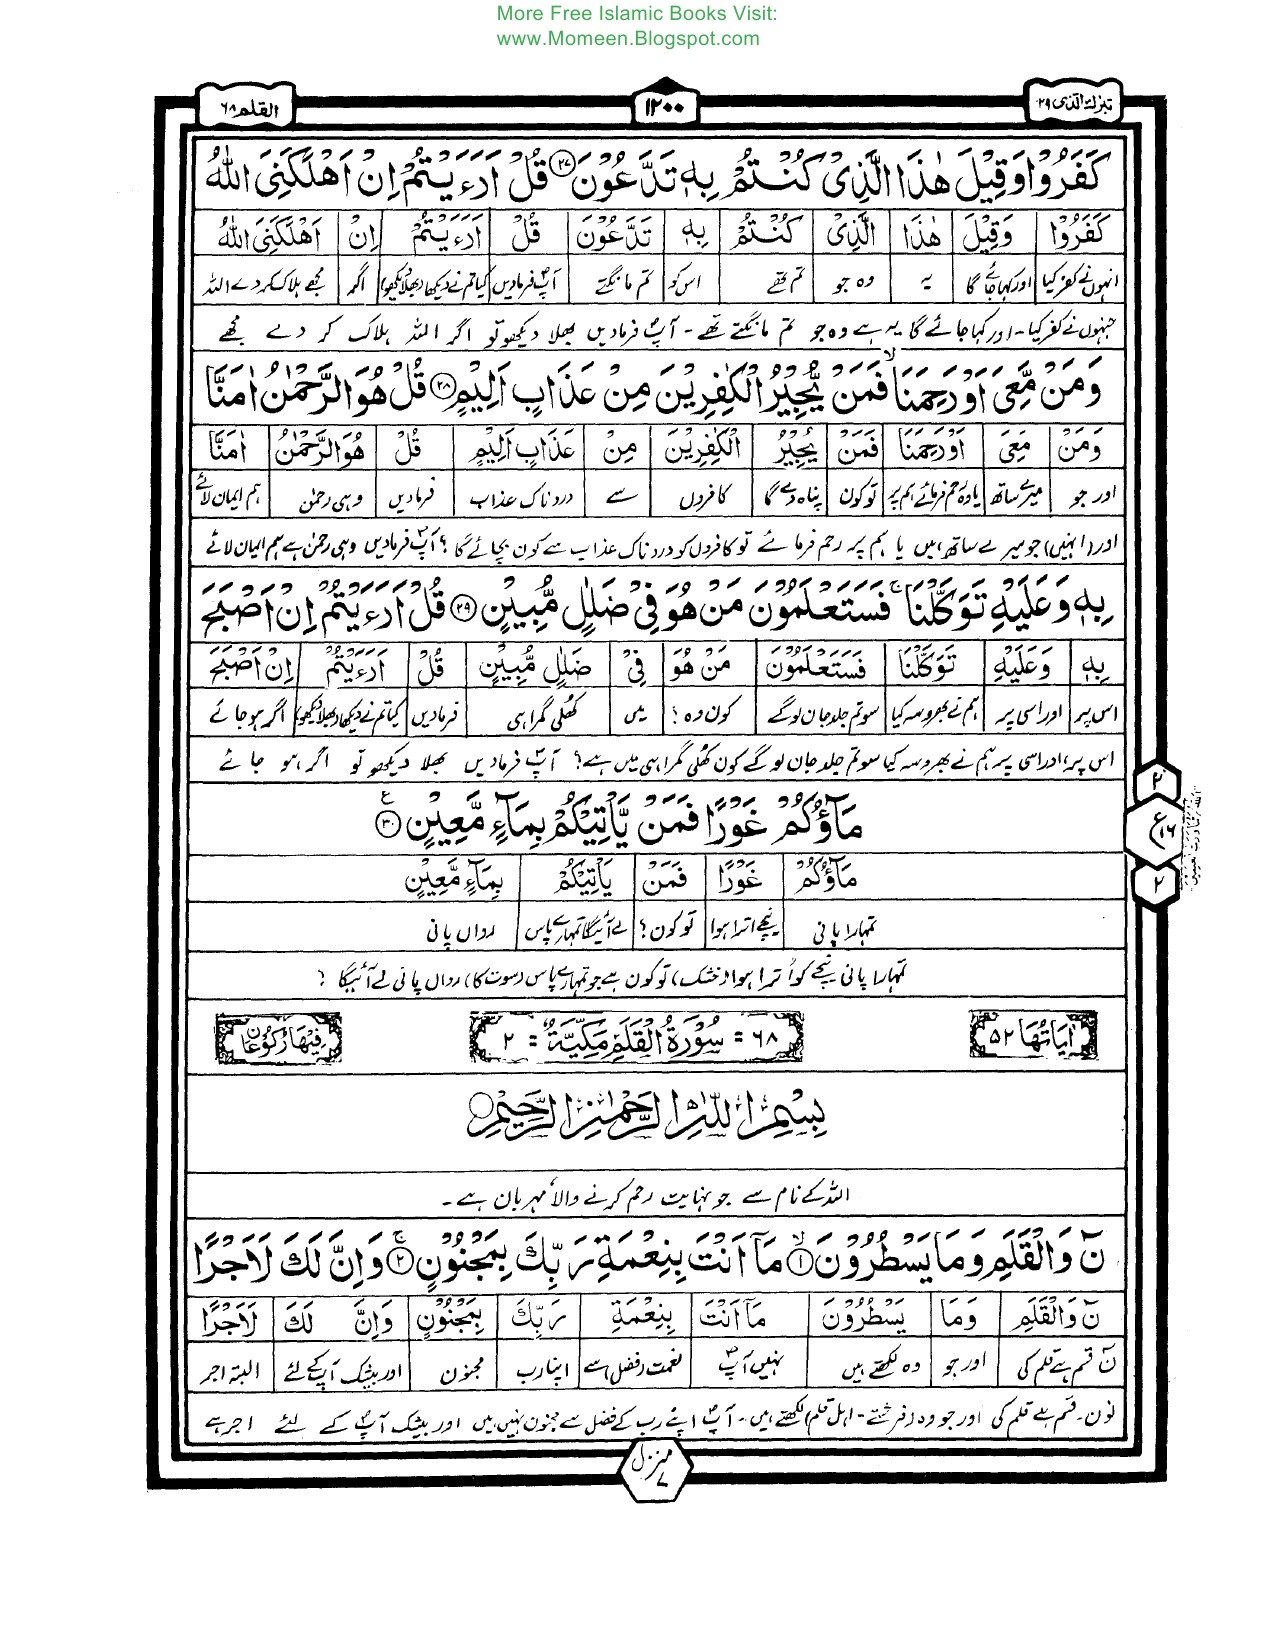 More Free Islamic Books Visit:
www.Momeen.Blogspot.com
تبرك الذى ٢٩
١٢٠٠
القلم ٦٨
كَفَرُوْا وَقِيْلَ هٰذَا الَّذِىْ كُنْتُمْ بِهٖ تَدَّعُوْنَ ﴿٢٧﴾ قُلْ اَرَءَيْتُمْ اِنْ اَهْلَكَنِىَ اللّٰهُ
كَفَرُوْا وَقِيْلَ هٰذَا الَّذِىْ كُنْتُمْ بِهٖ تَدَّعُوْنَ قُلْ اَرَءَيْتُمْ اِنْ اَهْلَكَنِىَ اللّٰهُ
انہوں نے کفر کیا اور کہا جائے گا یہ وہ جو تم تھے اس کو تم مانگتے آپؐ فرمادیں کیا تم نے دیکھا (بھلا دیکھو) اگر مجھے ہلاک کر دے اللہ
جنہوں نے کفر کیا - اور کہا جائے گا یہ ہے وہ جو تم مانگتے تھے - آپؐ فرمادیں بھلا دیکھو تو اگر اللہ ہلاک کر دے مجھے
وَمَنْ مَّعِىَ اَوْ رَحِمَنَا ۙ فَمَنْ يُّجِيْرُ الْكٰفِرِيْنَ مِنْ عَذَابٍ اَلِيْمٍ ﴿٢٨﴾ قُلْ هُوَ الرَّحْمٰنُ اٰمَنَّا
وَمَنْ مَّعِىَ اَوْ رَحِمَنَا فَمَنْ يُّجِيْرُ الْكٰفِرِيْنَ مِنْ عَذَابٍ اَلِيْمٍ قُلْ هُوَ الرَّحْمٰنُ اٰمَنَّا
اور جو میرے ساتھ یا وہ رحم فرمائے ہم پر تو کون پناہ دے گا کافروں سے دردناک عذاب فرمادیں وہی رحمٰن ہم ایمان لائے
اور (انہیں) جو میرے ساتھ ہیں یا ہم پر رحم فرمائے تو کافروں کو دردناک عذاب سے کون بچائے گا ؟ آپؐ فرمادیں وہی رحمٰن ہے ہم ایمان لائے
بِهٖ وَعَلَيْهِ تَوَكَّلْنَا ۚ فَسَتَعْلَمُوْنَ مَنْ هُوَ فِىْ ضَلٰلٍ مُّبِيْنٍ ﴿٢٩﴾ قُلْ اَرَءَيْتُمْ اِنْ اَصْبَحَ
بِهٖ وَعَلَيْهِ تَوَكَّلْنَا فَسَتَعْلَمُوْنَ مَنْ هُوَ فِىْ ضَلٰلٍ مُّبِيْنٍ قُلْ اَرَءَيْتُمْ اِنْ اَصْبَحَ
اس پر اور اسی پر ہم نے بھروسہ کیا سو تم جلد جان لو گے کون وہ ؟ میں کھلی گمراہی فرمادیں کیا تم نے دیکھا (بھلا دیکھو) اگر ہو جائے
اس پر ، اور اسی پر ہم نے بھروسہ کیا سو تم جلد جان لو گے کون کھلی گمراہی میں ہے ؟ آپؐ فرمادیں بھلا دیکھو تو اگر ہو جائے
مَآؤُكُمْ غَوْرًا فَمَنْ يَّاْتِيْكُمْ بِمَآءٍ مَّعِيْنٍ ﴿٣٠﴾ ع
٢
ع ١٦
٢
مَآؤُكُمْ غَوْرًا فَمَنْ يَّاْتِيْكُمْ بِمَآءٍ مَّعِيْنٍ
تمہارا پانی نیچے اترا ہوا تو کون ؟ لے آئیگا تمہارے پاس رواں پانی
تمہارا پانی نیچے کو اُترا ہوا (خشک) تو کون ہے جو تمہارے پاس (سوت کا) رواں پانی لے آئیگا ؟
اٰيَاتُهَا ٥٢
٦٨ = سُوْرَةُ الْقَلَمِ مَكِّيَّةٌ = ٢
فِيْهَا رُكُوْعَانِ
بِسْمِ اللّٰهِ الرَّحْمٰنِ الرَّحِيْمِ
اللہ کے نام سے جو نہایت رحم کرنے والا مہربان ہے ۔
نٓ وَالْقَلَمِ وَمَا يَسْطُرُوْنَ ۙ﴿١﴾ مَآ اَنْتَ بِنِعْمَةِ رَبِّكَ بِمَجْنُوْنٍ ۚ﴿٢﴾ وَاِنَّ لَكَ لَاَجْرًا
نٓ وَالْقَلَمِ وَمَا يَسْطُرُوْنَ مَآ اَنْتَ بِنِعْمَةِ رَبِّكَ بِمَجْنُوْنٍ وَاِنَّ لَكَ لَاَجْرًا
نٓ قسم ہے قلم کی اور جو وہ لکھتے ہیں نہیں آپؐ نعمت (فضل) سے اپنا رب مجنون اور بیشک آپ کے لئے البتہ اجر
نون - قسم ہے قلم کی اور جو وہ (فرشتے - اہل قلم) لکھتے ہیں - آپؐ اپنے رب کے فضل سے مجنون نہیں ہیں اور بیشک آپؐ کے لئے اجر ہے
منزل ٧